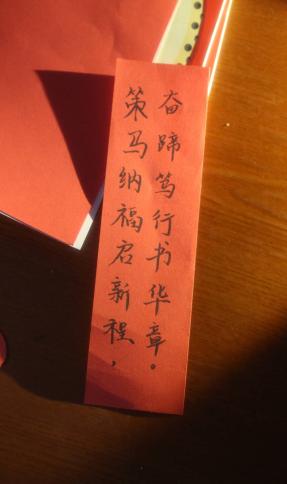 策马纳福启新程，
奋蹄笃行书华章。